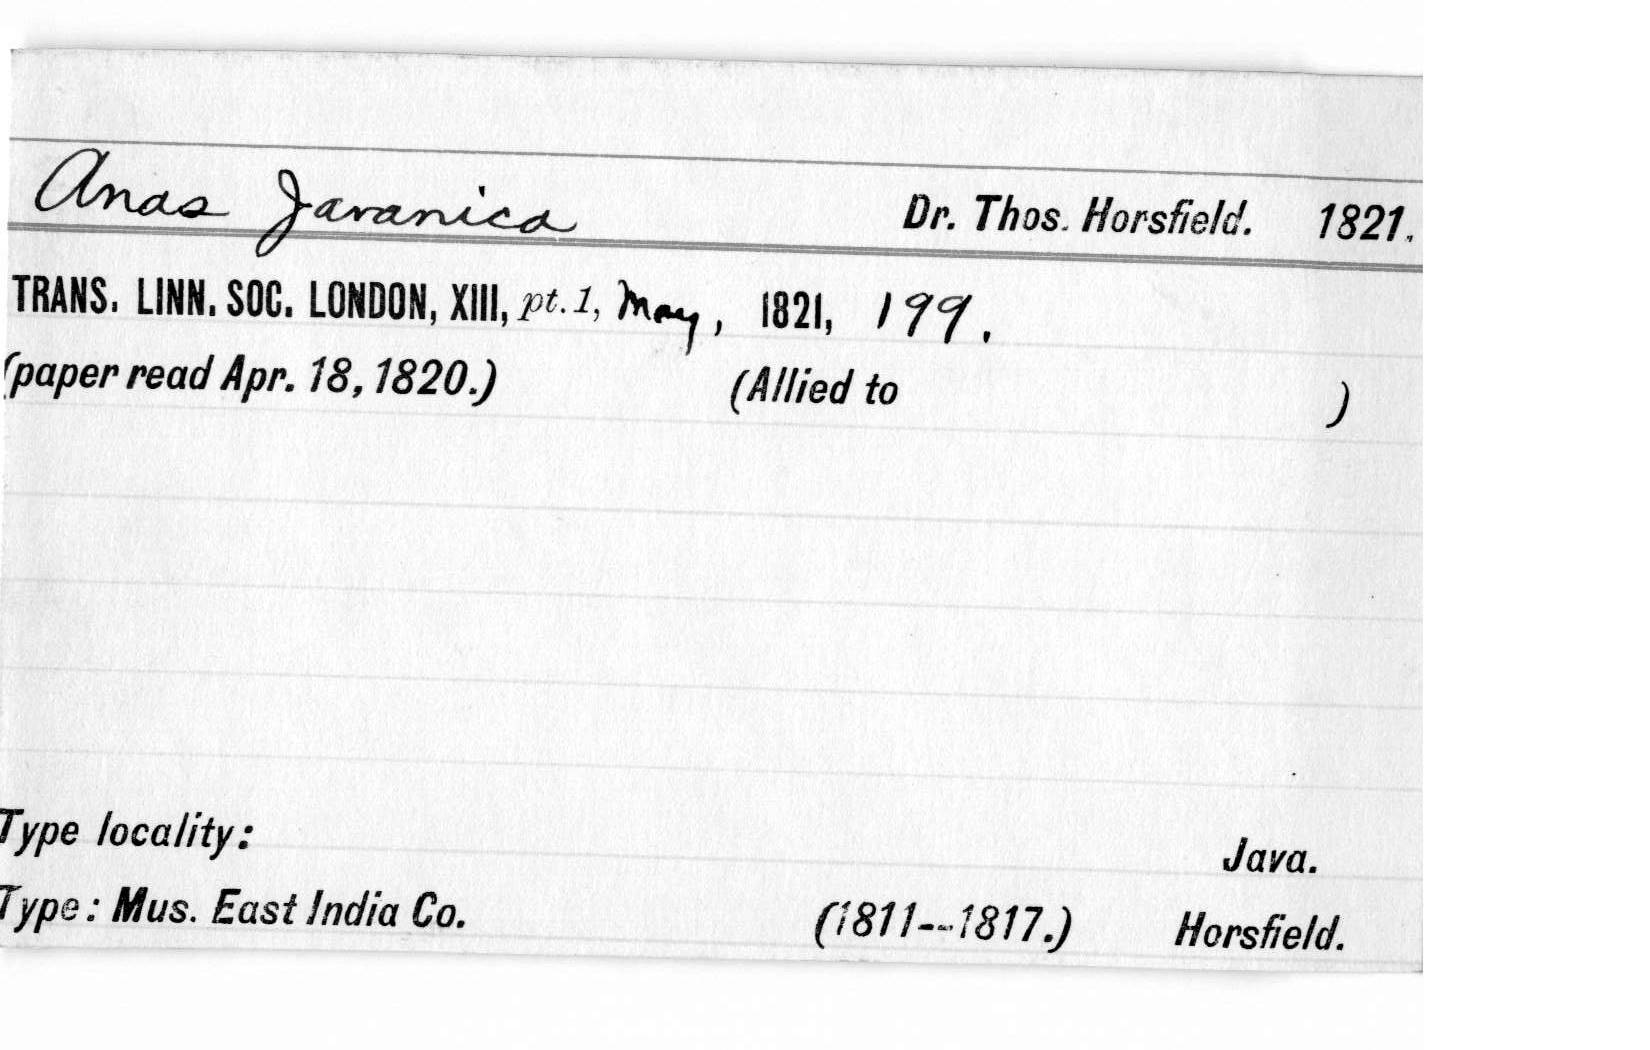 Anas Javanica Dr. Thos. Horsfield. 1821.
TRANS. LINN. SOC. LONDON, XIII, pt. 1, May, 1821, 199.
(paper read Apr. 18, 1820.) (Allied to )
Type locality: Java.
Type: Mus. East India Co. (1811--1817.) Horsfield.